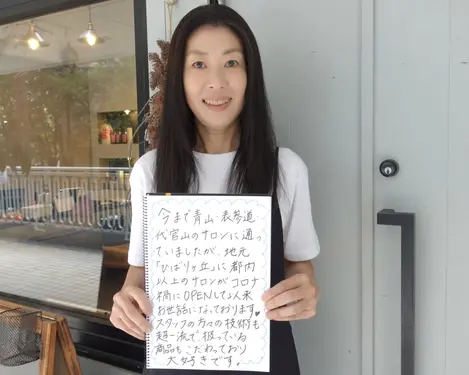 今まで青山・表参道・
代官山のサロンに通っ
ていましたが、地元
「ひばりヶ丘」に都内
以上のサロンがコロナ
禍にOPENして以来
お世話になっております♥
スタッフの方々の技術も
超一流で扱っている
商品もこだわっており
大好きです。